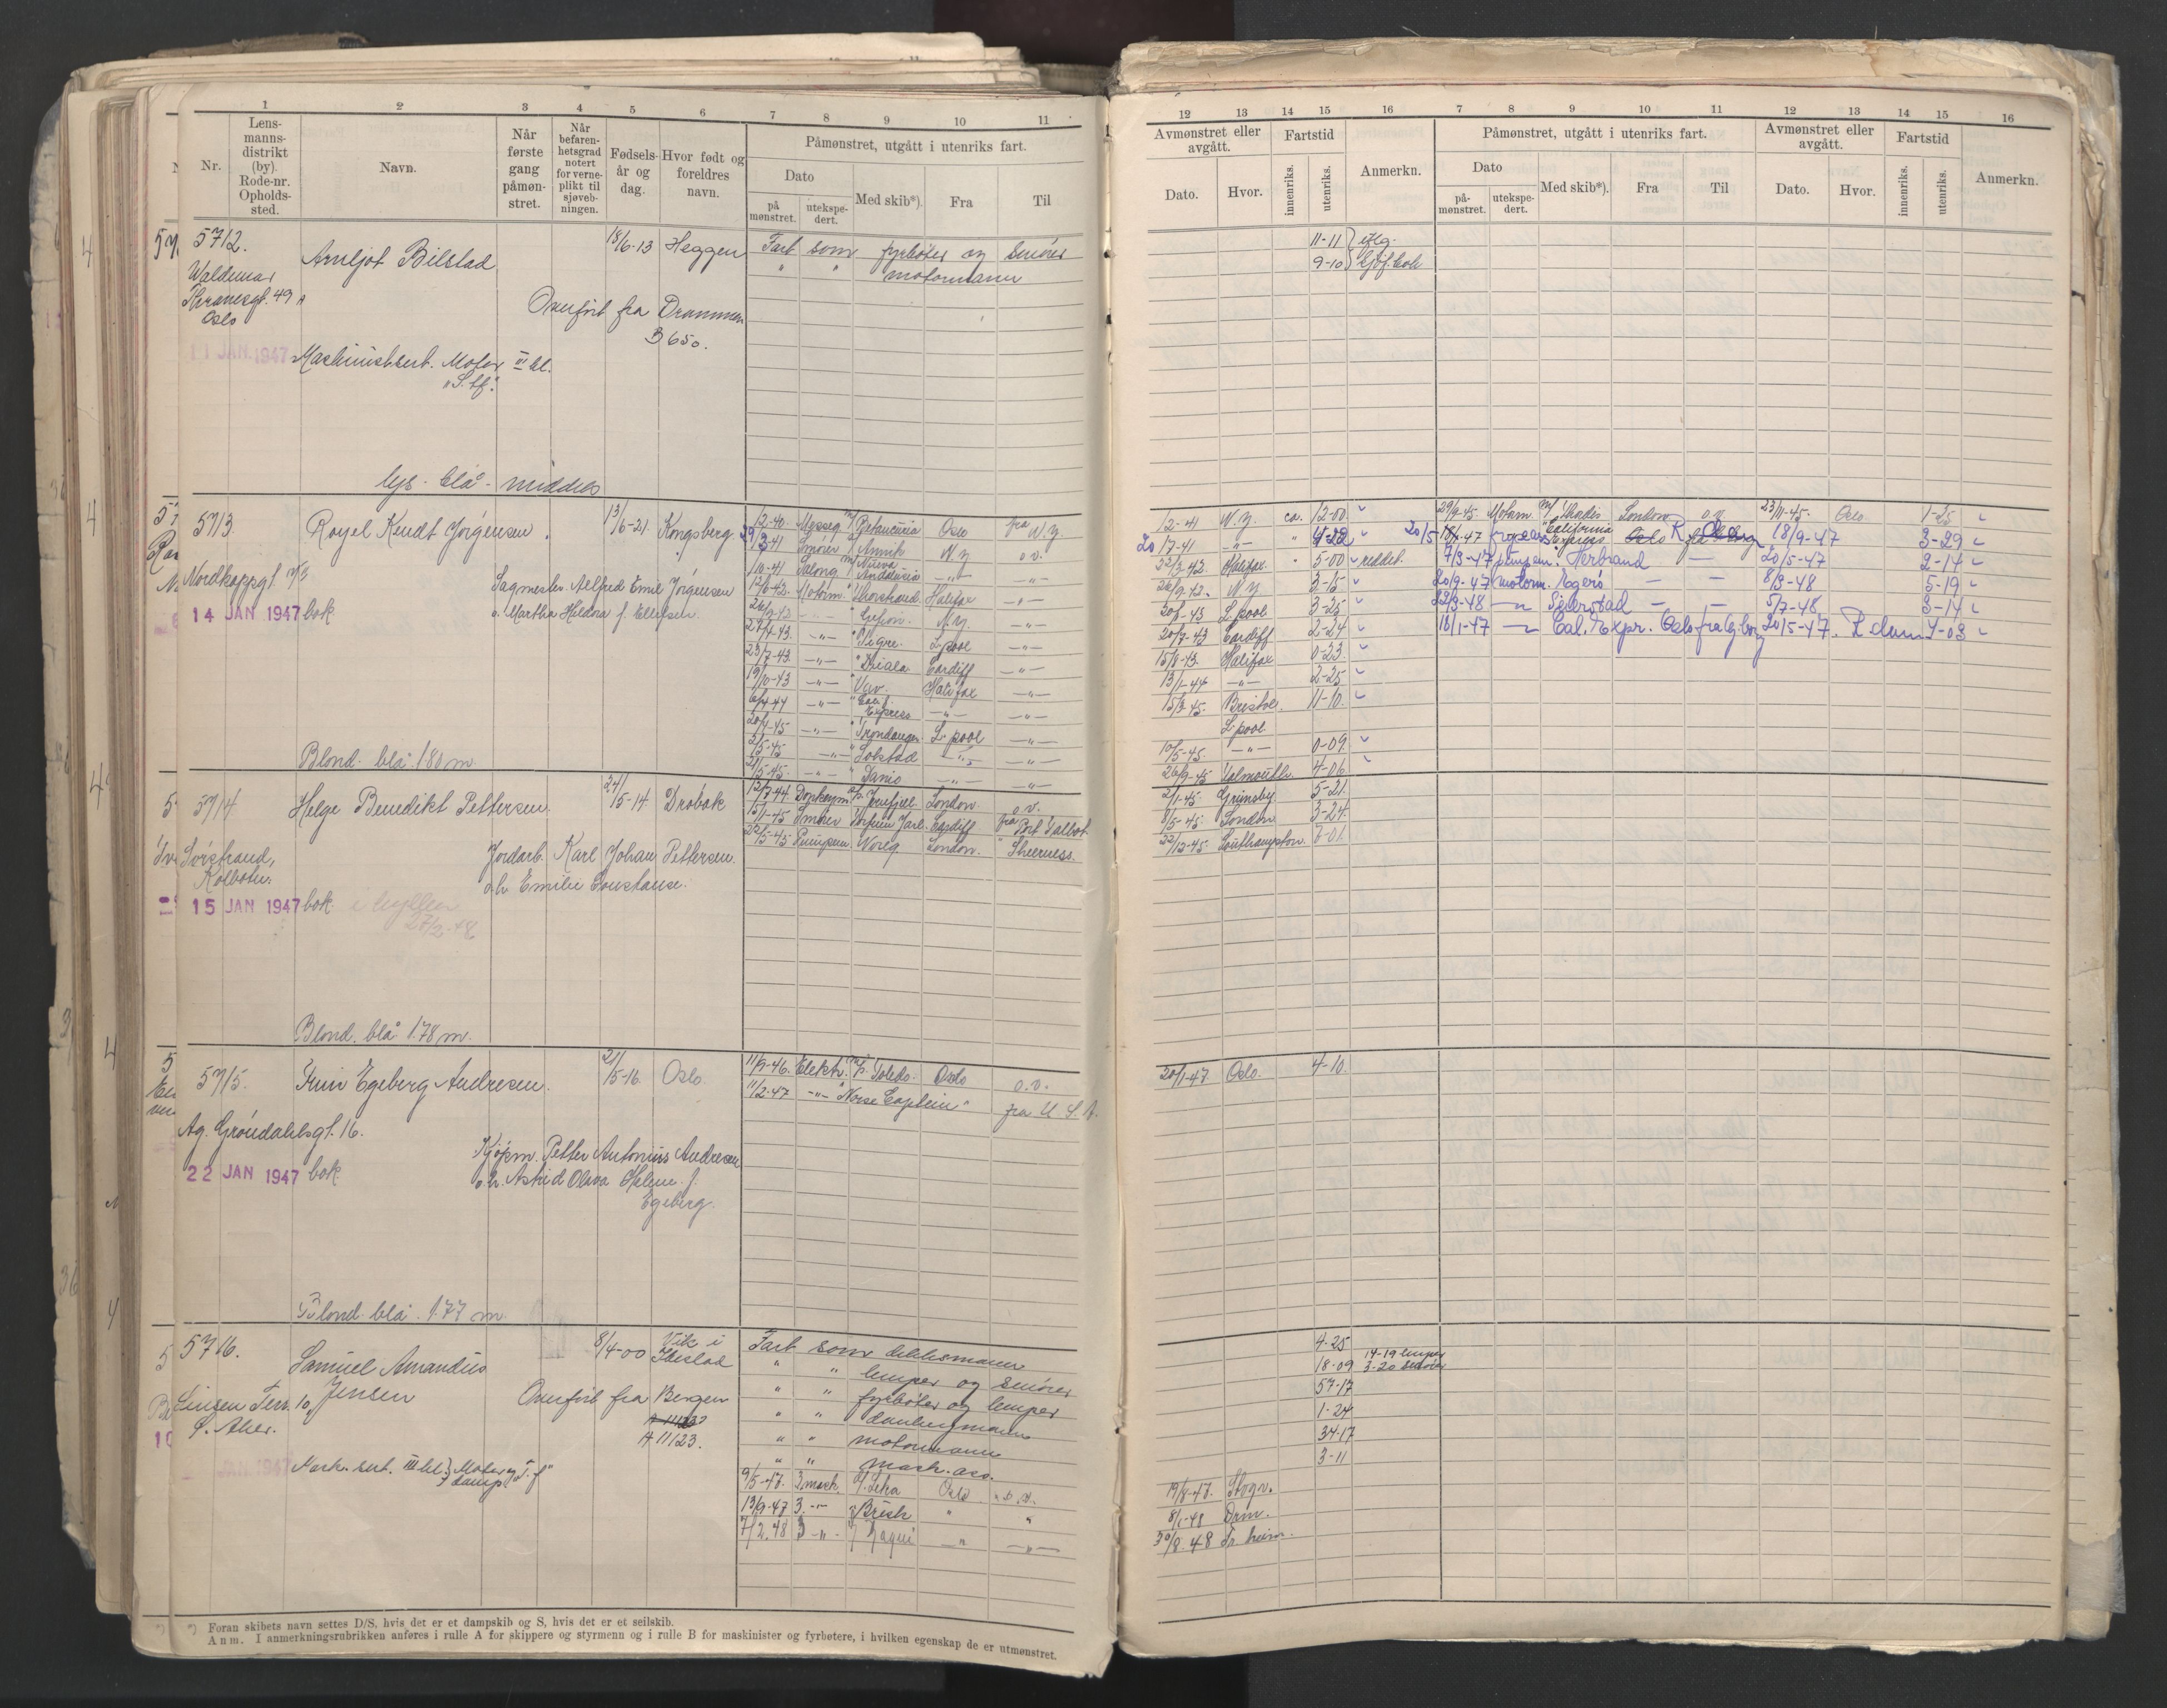 1 2 3 4 5 6 7 8 9 10 11
Nr.
Lens-
manns-
distrikt
(by).
Rode-nr.
Opholds-
sted.
Navn.
Når
første
gang
påmøn-
stret.
Når
befaren-
hetsgrad
notert
for verne-
plikt til
sjøveb-
ningen.
Fødsels-
år og
dag.
Hvor født og
foreldres
navn.
Påmønstret, utgått i utenriks fart.
Dato
på
mønstret.
utekspe-
dert.
Med skib*).
Fra
Til
5712.
Arnljot Bilstad
18/6-13 Heggen
Fart som fyrbøter og smører
" " motormann
Waldemar
Hranesgt. 49 A
Oslo
Overført fra Drammen
B 650.
11 JAN. 1947
Maskinistsert. Motor III kl.
lys - blå - middels
5713
Royel Kendt Jørgensen.
13/6-21. Kongsberg
Nordkappgt.
Sagmester Alfred Emil Jørgensen
o. Martha Haldora f. Ellefsen.
14 JAN 1947 bok
12-40. Messeg. Betancuria Oslo fra N.Y.
29/3-41 Smører Annik N.Y. o.v.
/10-41 Salong Nueva Andalucia —"— —"—
12/6-42. Motorm. Thorstrand. Halifax —"—
26/9-42 —"— N.Y. —"—
27/4-43. —"— Vigre. L.pool —"—
23/7-43. —"— Driala Cardiff —"—
19/10-43 —"— Vav. Halifax —"—
6/4-44 —"— Calif. Express —"— —"—
20/4-45 —"— Trondanger L-pool —"—
2/5-45 —"— Solstad —"— —"—
21/5-45. —"— Danio —"— —"—
Blond. blå. 1.80 m.
5714
Helge Benedikt Pettersen.
24/5-14. Drøbak
12/7-44 Donkeym. Jernfjell London. o.v.
15/1-45 Smører Torfinn Jarl. Cardiff fra Port Talbot
22/5-45 Pumpem. Noreg London. " Sheerness.
Svistrand,
Kolbotn.
Jordarb. Karl Johan Pettersen.
o.h. Emilie Constanse.
15 JAN 1947 bok. i hyllen
27/2-48
Blond. blå 1.78 m.
5715.
Finn Egeberg Andresen.
21/5-16. Oslo.
11/9-46. Elektr. Toledo. Oslo o.v.
11/2-47 —"— "Norse Captain" fra U.S.A.
Ag. Grøndahlsgt. 16.
Kjøpm. Petter Antonius Andresen
o.h. Astrid Olava Helene f.
Egeberg.
22 JAN 1947 bok.
Blond. blå. 1.77 m
5716.
Samuel Amandus
Jensen
8/4-00 Vik i
Ibestad
Fart som dekksmann
" " lemper og smører
" " fyrbøter og lemper
" " donkeymann
" " motormann
" " mask. ass.
S. Aker.
Overført fra Bergen
A 11123.
JAN 1947
Mask. sert. III kl. Motor og damp
9/5-47. 3.mask. Leka Oslo
13/9-47 3 —"— Brisk " "
7/2.48 3 —"— —"— —"—
Foran skibets navn settes D/S, hvis det er et dampskib og S, hvis det er et seilskib.
Anm. I anmerkningsrubrikken anføres i rulle A for skippere og styrmenn og i rulle B for maskinister og fyrbøtere, i hvilken egenskap de er utmønstret.
12 13 14 15 16 7 8 9 10 11 12 13 14 15 16
Avmønstret eller
avgått.
Dato.
Hvor.
Fartstid
innenriks.
utenriks.
Anmerkn.
Påmønstret, utgått i utenriks fart.
Dato
på-
mønstret.
utekspe-
dert.
Med skib*).
Fra
Til
Avmønstret eller
avgått.
Dato.
Hvor.
Fartstid
innenriks.
utenriks.
Anmerkn.
11-11
9-10
12-41 N.Y. ca. 12-00 29/9-45. Motorm. London o.v. 23/11-45. Oslo. 1-25
20/7-41 —"— " 4-22 California Express Oslo 18/9-47 3-29
22/3-42. Halifax. " 5-00 reddet. 7/3-47 pumpem. Herbrand — 20/5-47 2-14
26/9-42. N.Y. 3-15 20/9-47 motorm. Egerø — — 8/3-48 5-19
20/3-43 L.pool 3-25 22/3-48 —"— Seierstad — — 5/7-48. 3-14
20/7-43 Cardiff 2-24 18/1-47 —"— Cal. Expr. Oslo fra Gbg. 20/5-47. R.dam 4-03
15/8-43. Halifax 0-23.
13/1-44 —"— 2-25
15/3-45. Bristol. 11-10.
L.pool
10/5-45. —"— 0-09.
26/9-45 Falmouth. 4-06
2/1-45. Grimsby. 5-21.
8/5-45. London 3-24.
22/12-45. Southampton. 7-01.
20/1-47 Oslo. 4-10.
4-25
18-09 14-19 lemper
3-20 smører
57-17
1-24
34-17
3-11
19/8-47.
8/1-48 Dram.
30/8.48 Tr.heim.